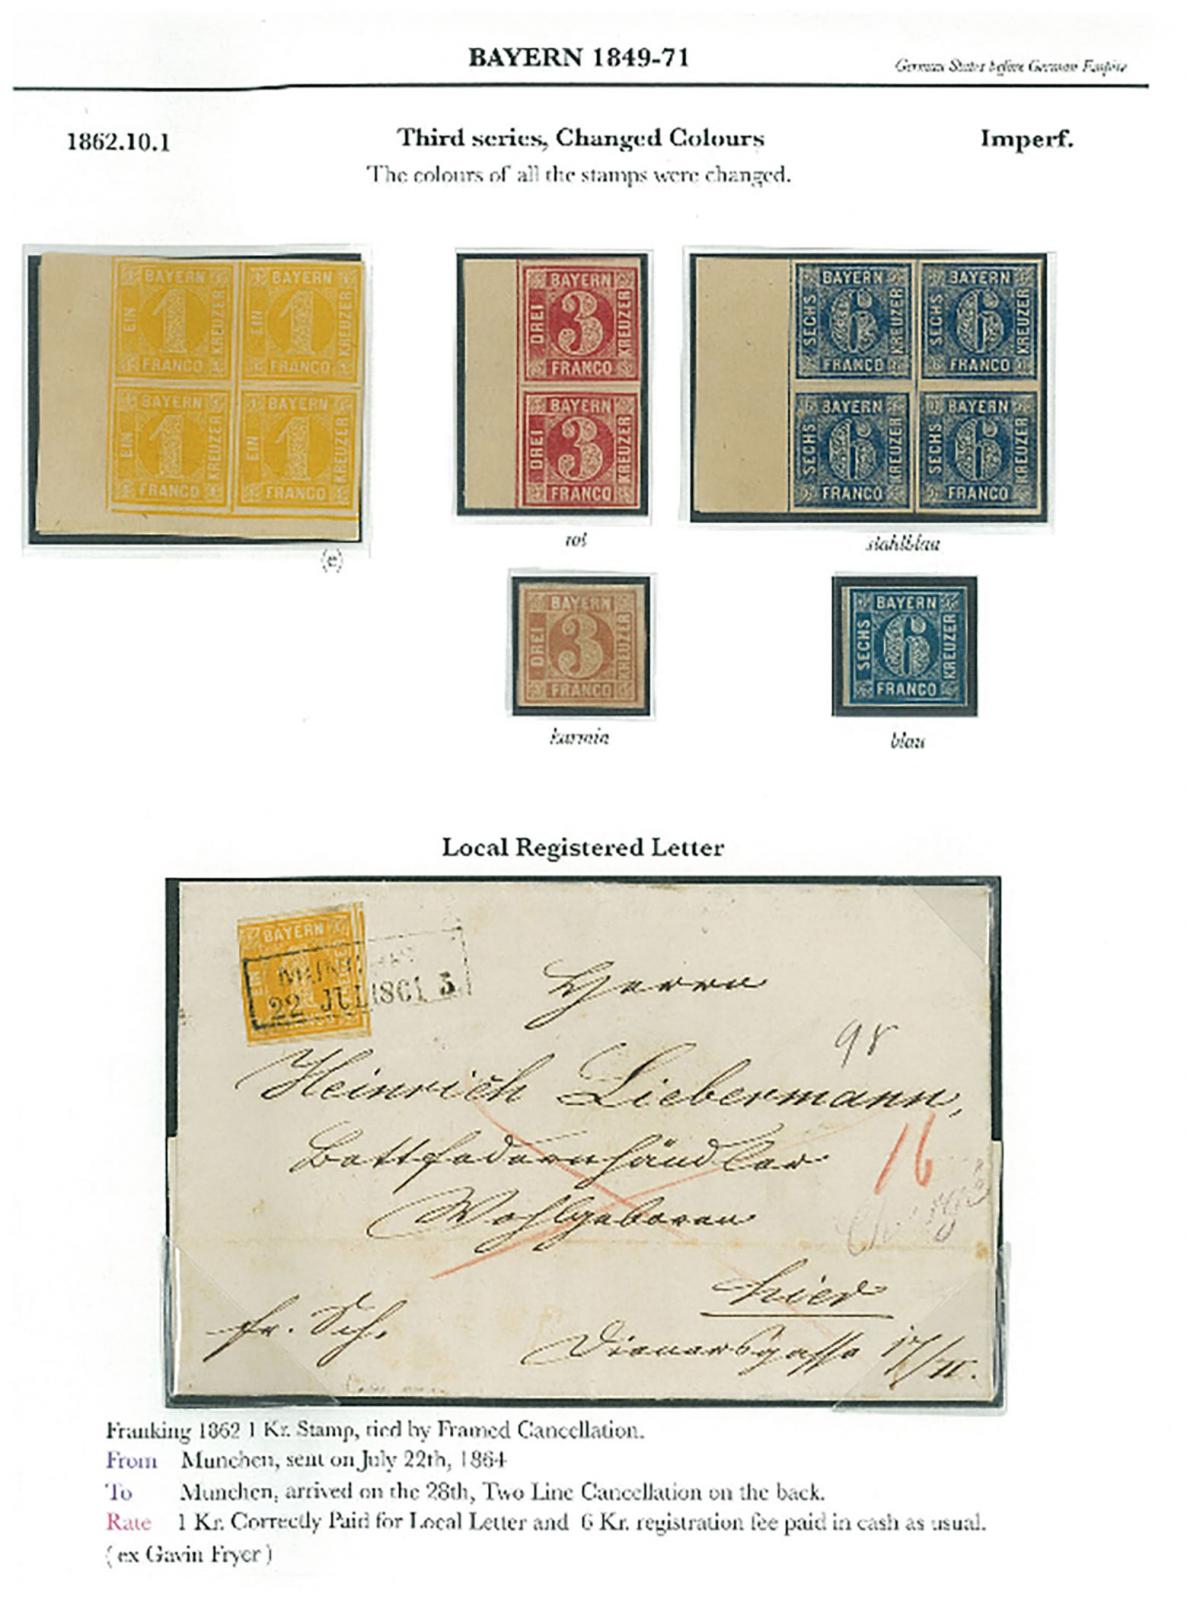 BAYERN 1849-71
German States before German Empire
1862.10.1
Third series, Changed Colours
Imperf.
The colours of all the stamps were changed.
BAYERN BAYERN
EIN 1 KREUZER EIN 1 KREUZER
FRANCO FRANCO
BAYERN BAYERN
EIN 1 KREUZER EIN 1 KREUZER
FRANCO FRANCO
(e)
BAYERN
DREI 3 KREUZER
FRANCO
BAYERN
DREI 3 KREUZER
FRANCO
rot
BAYERN BAYERN
SECHS 6 KREUZER SECHS 6 KREUZER
FRANCO FRANCO
BAYERN BAYERN
SECHS 6 KREUZER SECHS 6 KREUZER
FRANCO FRANCO
stahlblau
BAYERN
DREI 3 KREUZER
FRANCO
karmin
BAYERN
SECHS 6 KREUZER
FRANCO
blau
Local Registered Letter
BAYERN
EIN
22 JUL 1864 5
Herrn
98
Heinrich Liebermann,
Bettfedernhändler
16
Wohlgeboren
Chargé
hier
fr. Sch.
Dienersgasse 17/II.
Franking 1862 1 Kr. Stamp, tied by Framed Cancellation.
From Munchen, sent on July 22th, 1864
To Munchen, arrived on the 28th, Two Line Cancellation on the back.
Rate 1 Kr. Correctly Paid for Local Letter and 6 Kr. registration fee paid in cash as usual.
( ex Gavin Fryer )